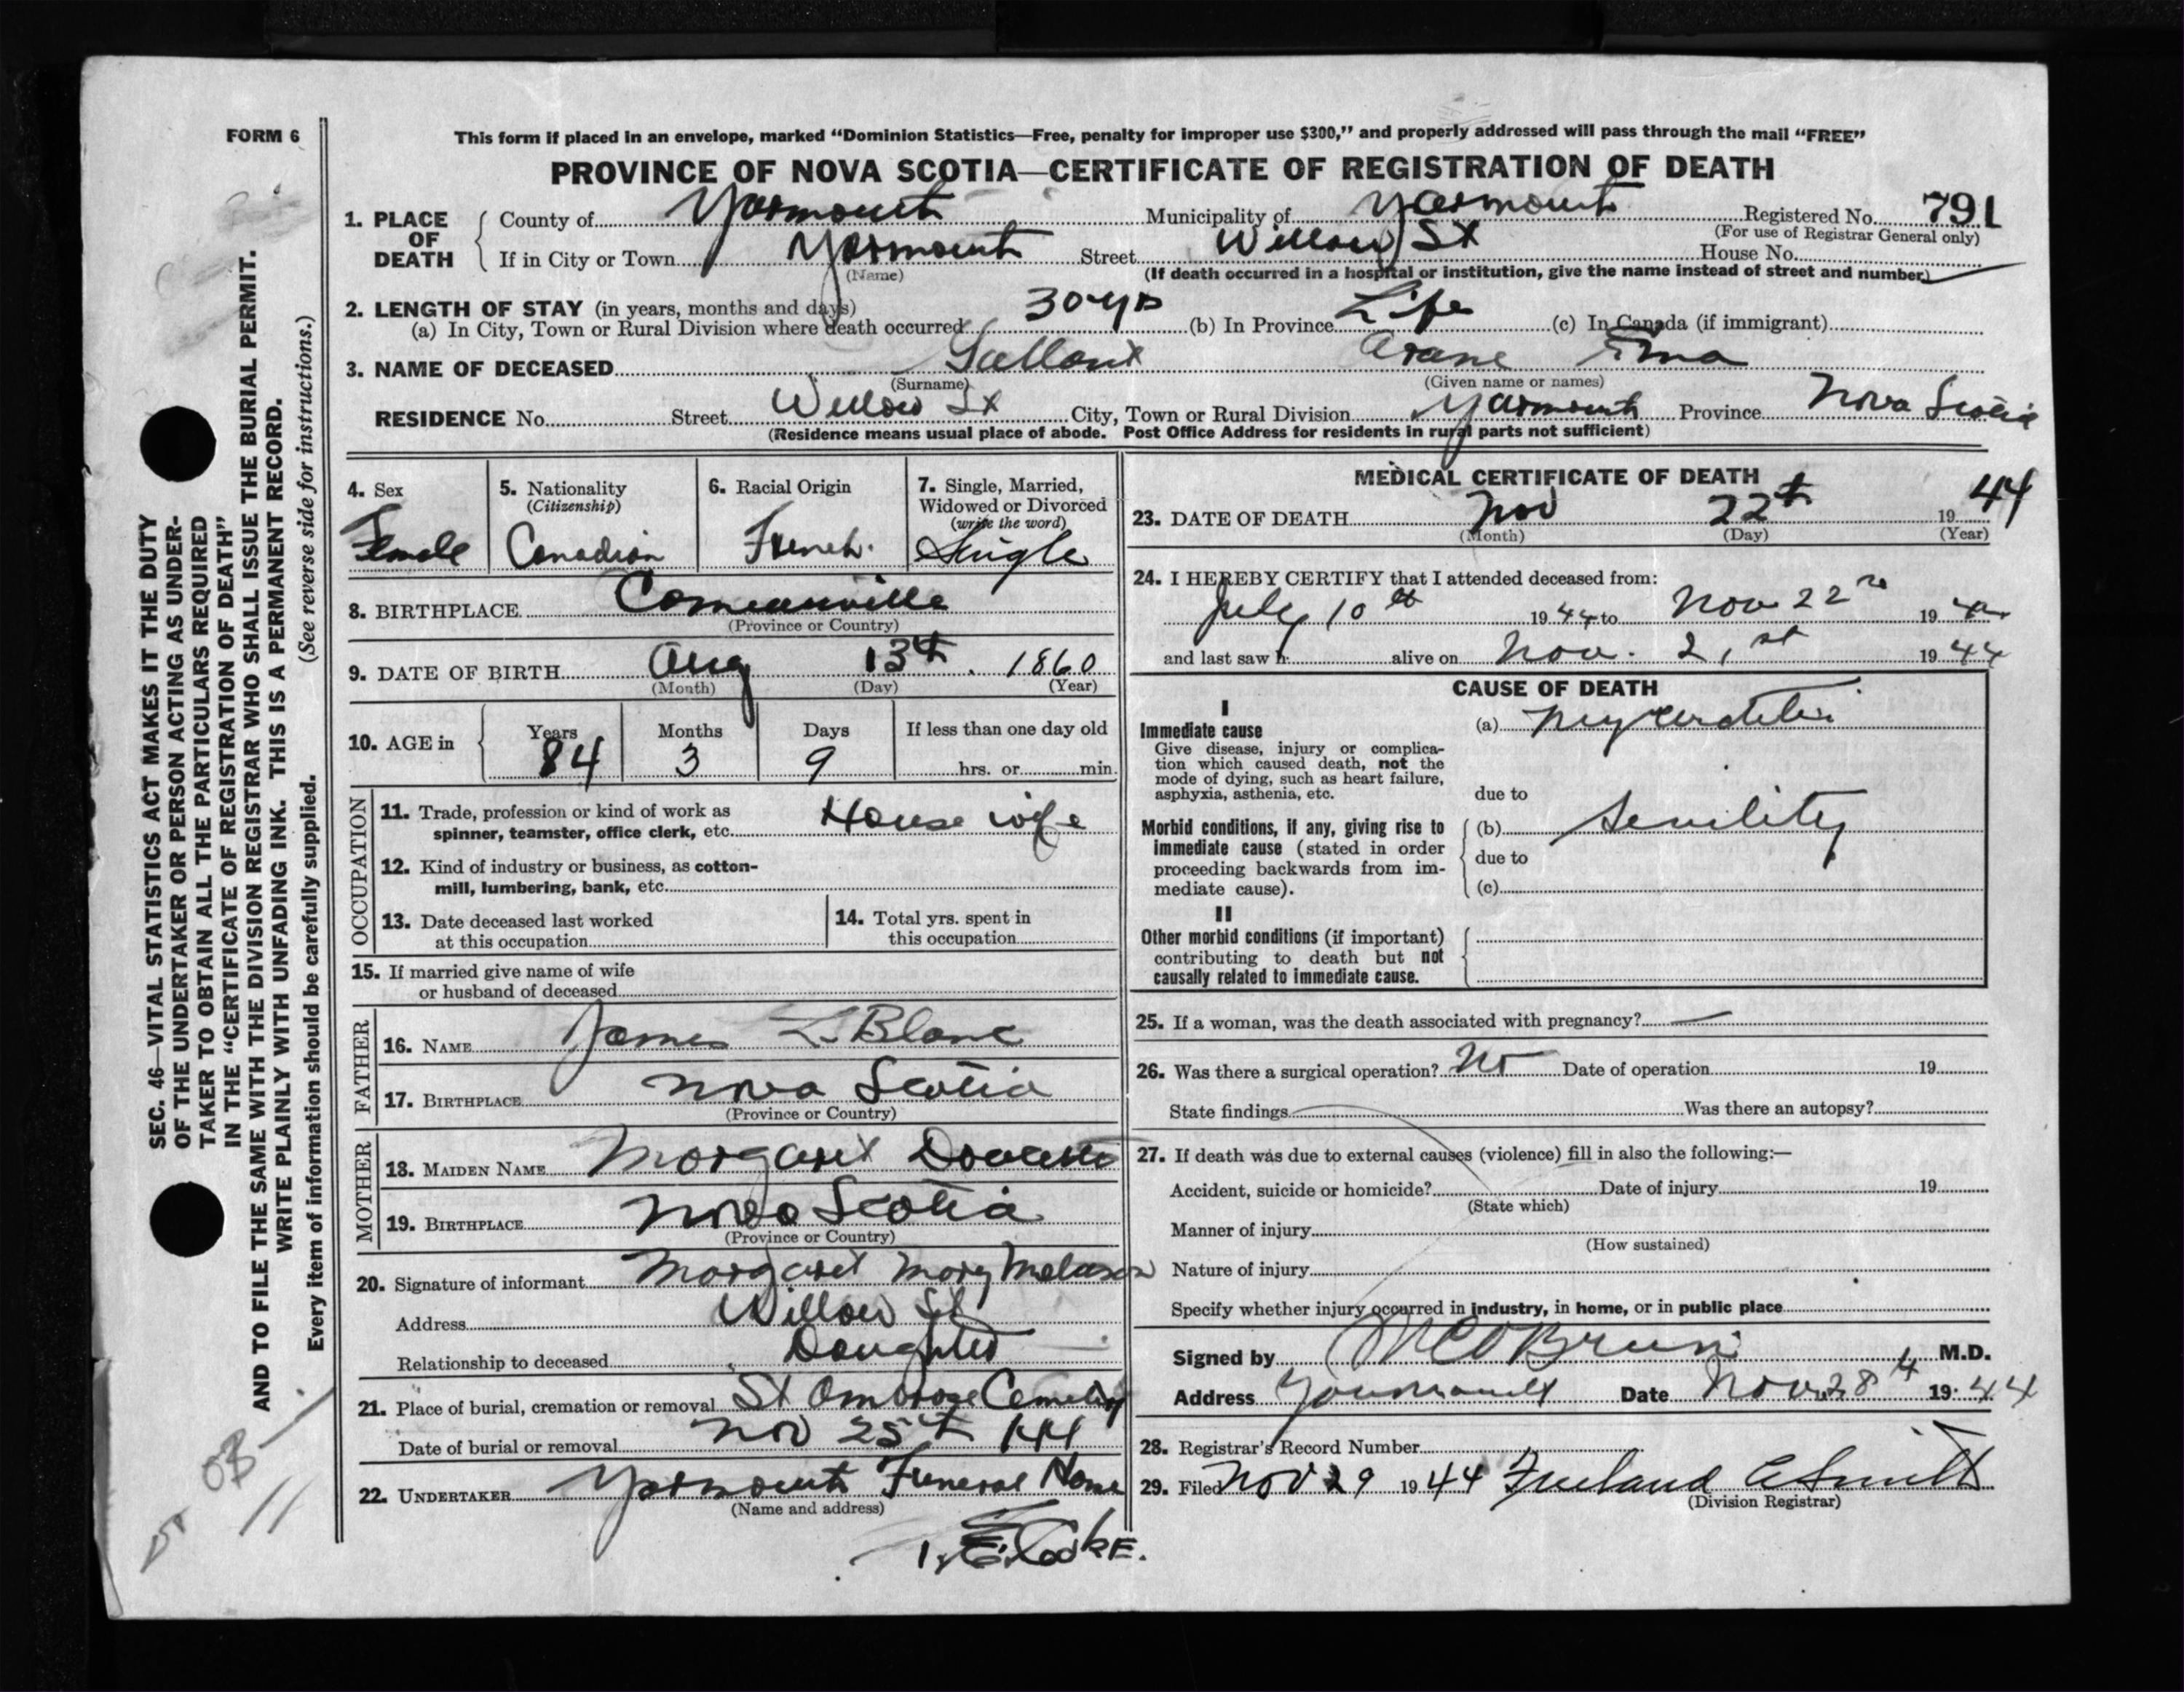 FORM 6
This form if placed in an envelope, marked “Dominion Statistics—Free, penalty for improper use $300,” and properly addressed will pass through the mail “FREE”
PROVINCE OF NOVA SCOTIA—CERTIFICATE OF REGISTRATION OF DEATH
1. PLACE OF DEATH
County of Yarmouth Municipality of Yarmouth Registered No. 791
(For use of Registrar General only)
If in City or Town Yarmouth Street Willow St House No.
(Name) (If death occurred in a hospital or institution, give the name instead of street and number)
2. LENGTH OF STAY (in years, months and days)
(a) In City, Town or Rural Division where death occurred 30 yrs (b) In Province Life (c) In Canada (if immigrant)
3. NAME OF DECEASED
(Surname) (Given name or names)
RESIDENCE No. Street Willow St City, Town or Rural Division Yarmouth Province Nova Scotia
(Residence means usual place of abode. Post Office Address for residents in rural parts not sufficient)
4. Sex Female
5. Nationality (Citizenship) Canadian
6. Racial Origin French.
7. Single, Married, Widowed or Divorced (write the word) Single
8. BIRTHPLACE Comeauville
(Province or Country)
9. DATE OF BIRTH Aug 13th. 1860
(Month) (Day) (Year)
10. AGE in Years 84 Months 3 Days 9 If less than one day old
hrs. or min.
OCCUPATION
11. Trade, profession or kind of work as
spinner, teamster, office clerk, etc. House wife
12. Kind of industry or business, as cotton-
mill, lumbering, bank, etc.
13. Date deceased last worked
at this occupation
14. Total yrs. spent in
this occupation
15. If married give name of wife
or husband of deceased
FATHER
16. NAME James LeBlanc
17. BIRTHPLACE Nova Scotia
(Province or Country)
MOTHER
18. MAIDEN NAME Margaret
19. BIRTHPLACE Nova Scotia
(Province or Country)
20. Signature of informant Margaret Mary Melanson
Address Willow St
Relationship to deceased Daughter
21. Place of burial, cremation or removal St Ambrose Cemetery
Date of burial or removal Nov 25th 1944
22. UNDERTAKER Yarmouth Funeral Home
(Name and address)
MEDICAL CERTIFICATE OF DEATH
23. DATE OF DEATH Nov 22th 1944
(Month) (Day) (Year)
24. I HEREBY CERTIFY that I attended deceased from:
July 10th 1944 to Nov 22nd 1944
and last saw h alive on Nov. 21st 1944
CAUSE OF DEATH
I
Immediate cause
Give disease, injury or complica-
tion which caused death, not the
mode of dying, such as heart failure,
asphyxia, asthenia, etc.
(a) Myocarditis
due to
Morbid conditions, if any, giving rise to
immediate cause (stated in order
proceeding backwards from im-
mediate cause).
(b) Senility
due to
(c)
II
Other morbid conditions (if important)
contributing to death but not
causally related to immediate cause.
25. If a woman, was the death associated with pregnancy? —
26. Was there a surgical operation? No Date of operation 19
State findings Was there an autopsy?
27. If death was due to external causes (violence) fill in also the following:—
Accident, suicide or homicide? Date of injury 19
(State which)
Manner of injury
(How sustained)
Nature of injury
Specify whether injury occurred in industry, in home, or in public place
Signed by M.D.
Address Yarmouth Date Nov. 28th 1944
28. Registrar's Record Number
29. Filed Nov 29 1944 Freeland Smith
(Division Registrar)
SEC. 46—VITAL STATISTICS ACT MAKES IT THE DUTY
OF THE UNDERTAKER OR PERSON ACTING AS UNDER-
TAKER TO OBTAIN ALL THE PARTICULARS REQUIRED
IN THE “CERTIFICATE OF REGISTRATION OF DEATH”
AND TO FILE THE SAME WITH THE DIVISION REGISTRAR WHO SHALL ISSUE THE BURIAL PERMIT.
WRITE PLAINLY WITH UNFADING INK. THIS IS A PERMANENT RECORD.
Every item of information should be carefully supplied. (See reverse side for instructions.)